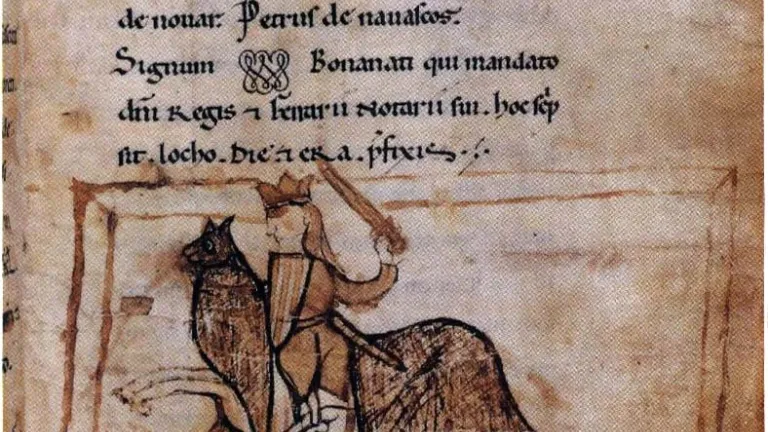 de nouar: Petrus de nauascos.
Signum Bonanati qui mandato
dni Regis ⁊ bernarii Notarii sui. hoc scp
sit. locho. Die ⁊ era. pfixis